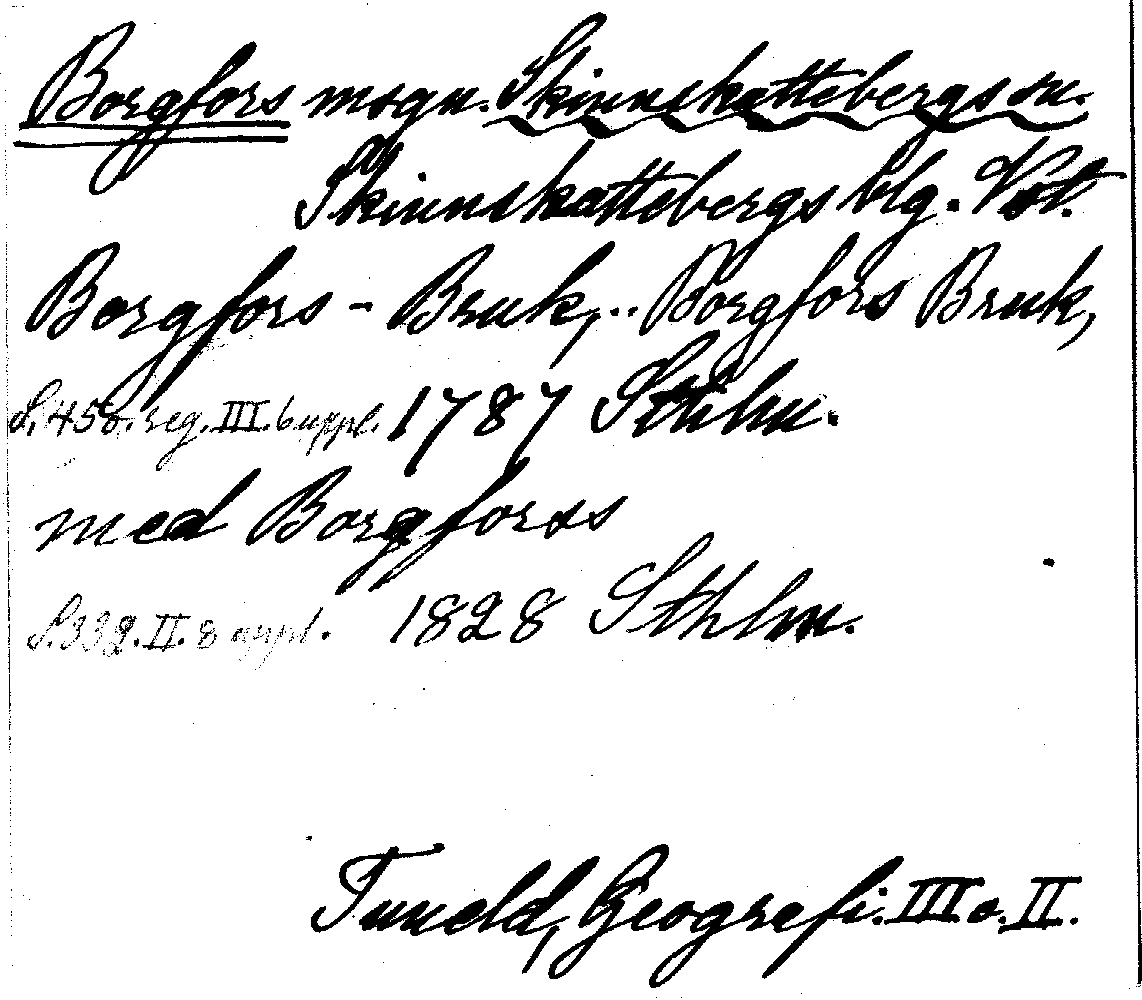 Borgfors msgn. Skinnskattebergs sn.
Skinnskattebergs blg. Vstm.
Borgfors - Bruk,.. Borgfors Bruk,
S. 458. reg. III. 6 uppl. 1787 Sthlm.
med Borgforss
S. 332. II. 8 uppl. 1828 Sthlm.
Tuneld, Geografi. III o. II.